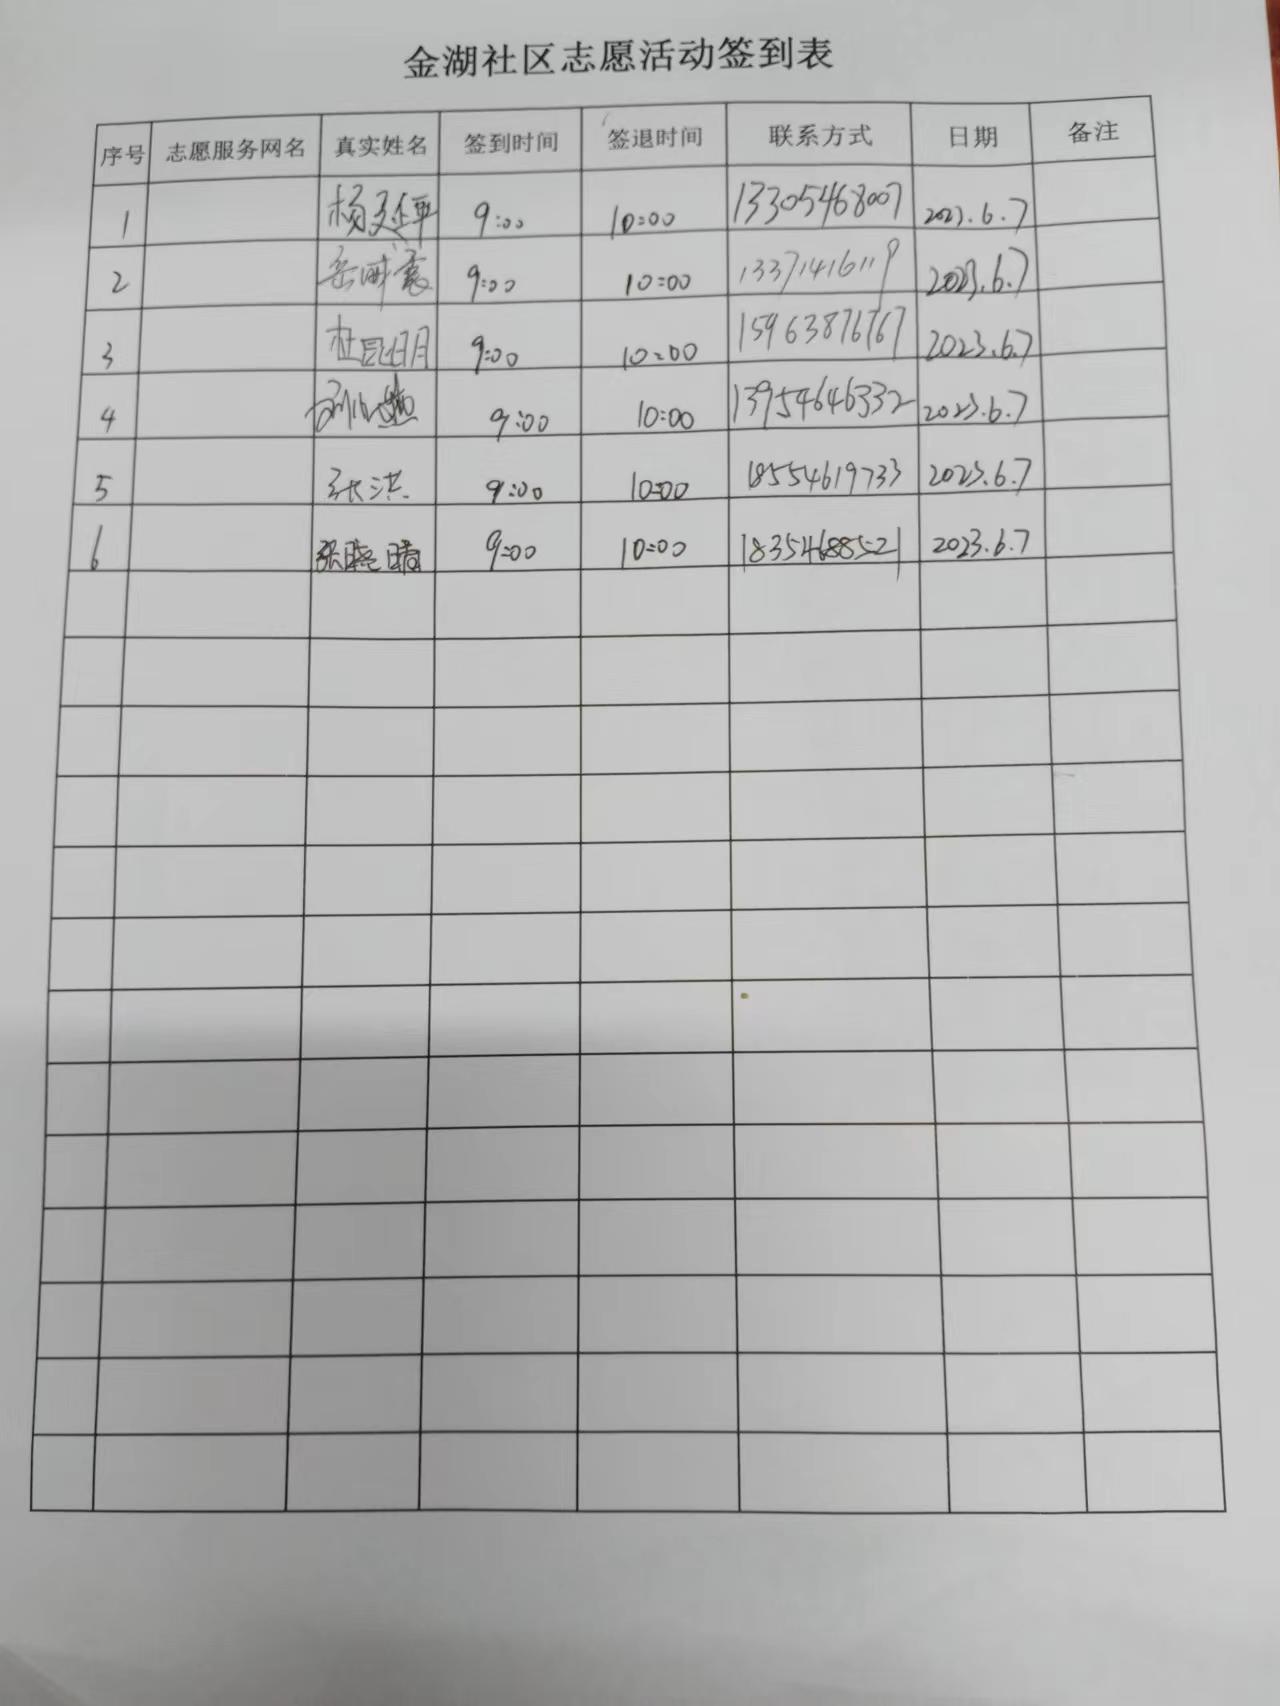 金湖社区志愿活动签到表
序号 志愿服务网名 真实姓名 签到时间 签退时间 联系方式 日期 备注
1 9:00 10:00 13305468007 2023.6.7
2 9:00 10:00 13371416119 2023.6.7
3 杜昆明 9:00 10:00 15963876767 2023.6.7
4 9:00 10:00 13954646332 2023.6.7
5 张洪 9:00 10:00 18554619733 2023.6.7
6 张晓晴 9:00 10:00 18354688521 2023.6.7